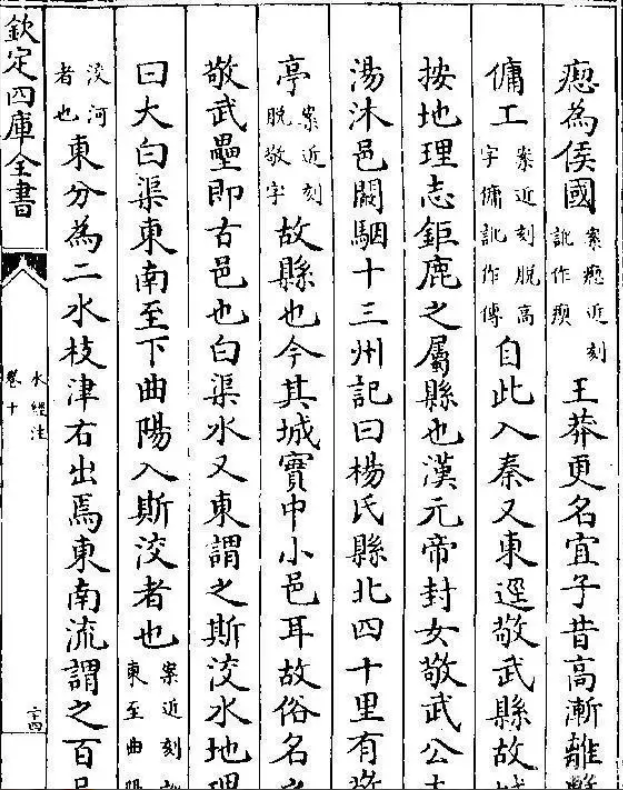 瘛為侯國案瘛近刻訛作王莽更名宜子昔高漸離
傭工案近刻脫高字傭訛作傳自此入秦又東逕敬武縣故城
按地理志鉅鹿之屬縣也漢元帝封女敬武公
湯沐邑闞駰十三州記曰楊氏縣北四十里有敬
亭案近刻脫敬字故縣也今其城實中小邑耳故俗名之
敬武壘即古邑也白渠水又東謂之斯洨水地理
曰大白渠東南至下曲陽入斯洨者也案近刻訛東至曲陽
洨河者也東分為二水枝津右出焉東南流謂之百
欽定四庫全書
水經注
卷十
二十四